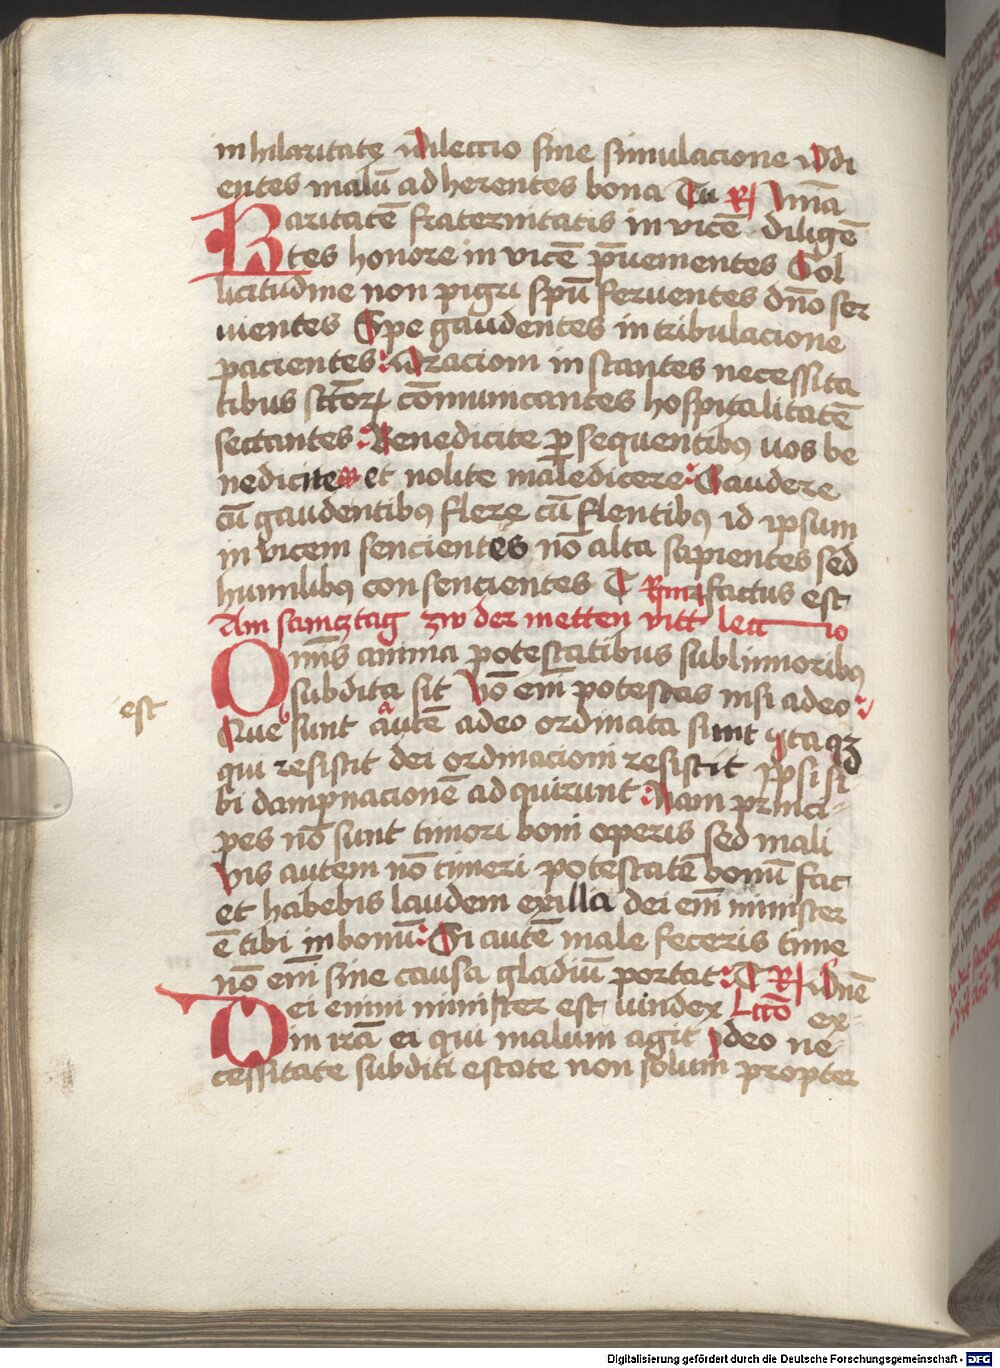 in hilaritate Dileccio sine simulacione Odi
entes malū adherentes bona Tu R Unā
Karitatē fraternitatis in vicē diligē
tes honore in vicē p̄uenientes Sol
licitudine non pigri spū feruentes dn̄o ser
uientes Spe gaudentes in tribulacione
pacientes Oracioni instantes necessita
tibus sctōrꝝ cōmunicantes hospitalitatē
sectantes Benedicite ꝑsequentibꝯ uos be
nedicite et nolite maledicere Gaudere
cū gaudentibꝯ flere cū flentibꝯ id ipsum
in vicem sencientes nō alta sapientes sed
humilibꝯ consencientes T R factus est
Am samcztag zw der metten vitt leccio
Omīs anima potestatibus sublimioribꝯ
subdita sit Nō em̄ potestas nisi adeo
est
Que sunt autē adeo ordinata sunt ita qꝫ
qui resistit dei ordinacioni resistit Ipsi si
bi dampnacionē ad quirunt Nam princi
pes nō sunt timori boni operis sed mali
Vis autem nō timeri potestatē bonū fac
et habebis laudem ex illa dei em̄ minister
ē tibi in bonū Si autē male feceris time
nō em̄ sine causa gladiū portat T R Dn̄e
Dei enim minister est uindex Lcc̄o ex
in irā ei qui malum agit Ideo ne
cessitate subditi estote non solum propter
Digitalisierung gefördert durch die Deutsche Forschungsgemeinschaft - DFG